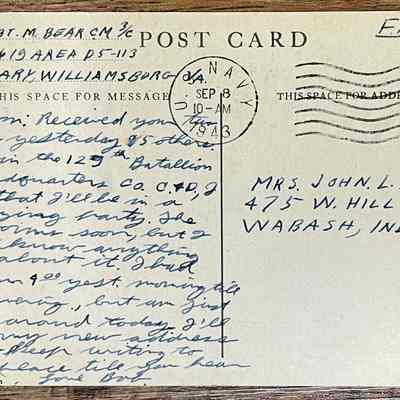 BT. M. BEAR CM 3/C
419 AREA D5-113
ARY, WILLIAMSBURG VA.
Free
POST CARD
U. S. NAVY
SEP 8
10-AM
1943
HIS SPACE FOR MESSAGE
THIS SPACE FOR ADDR
om: Received your two
yesterday & 5 others.
in the 129th Batallion
dquarters Co. C & D, I
that I'll be in a
ying party. She
orms soon, but I
know anything
about it. I had
4:00 yest. morning till
ening, but am just
around today. I'll
my new address
Keep writing to
place till you hear
Love Bob
MRS. JOHN L.
475 W. HILL
WABASH, IND